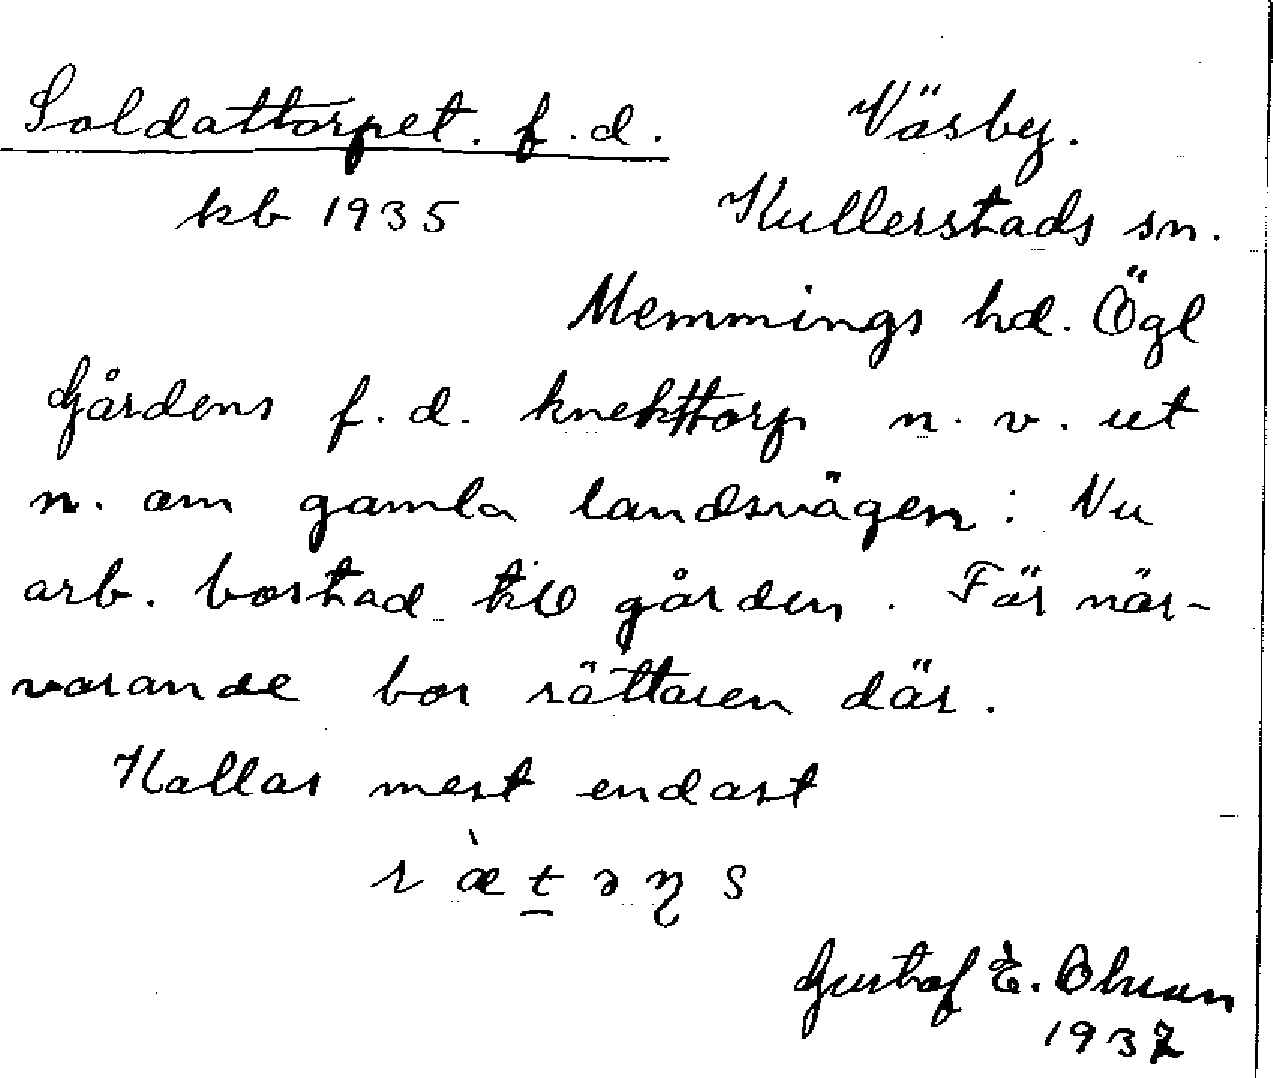 Soldattorpet. f.d. Väsby.
kb 1935 Kullerstads sn.
Memmings hd. Ögl
Gårdens f.d. knekttorp n.v. ut
n. om gamla landsvägen: Nu
arb. bostad till gården. För när-
varande bor rättaren där.
Kallas mest endast
r æ̀ t ə η s
Gustaf E. Ohlson
1937